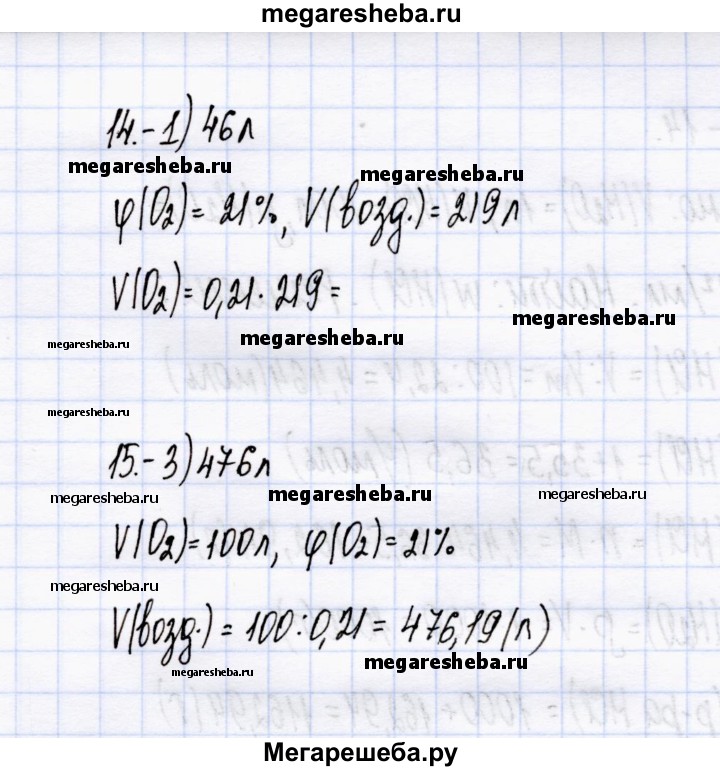 megaresheba.ru
14.-1) 46л
megaresheba.ru
megaresheba.ru
φ(O₂)= 21%, V(возд.)= 219 л
V(O₂)= 0,21·219=
megaresheba.ru
megaresheba.ru
megaresheba.ru
megaresheba.ru
15.-3) 476л
megaresheba.ru
megaresheba.ru
megaresheba.ru
V(O₂)=100л, φ(O₂)=21%
megaresheba.ru
V(возд.) = 100:0,21 = 476,19(л)
megaresheba.ru
megaresheba.ru
Мегарешеба.ру